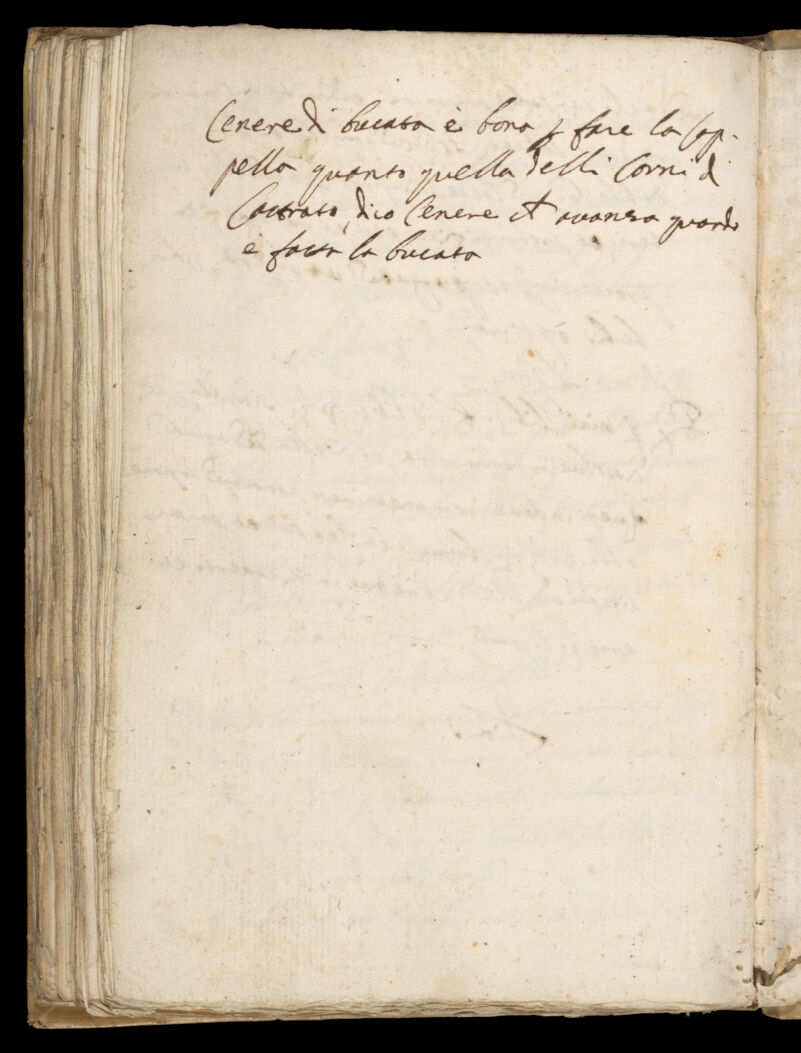 Cenere di bucata è bona p fare la Cop-
pella quanto quella delli Corni di
Castrato, dico Cenere ch avanza quando
è fatta la bucata